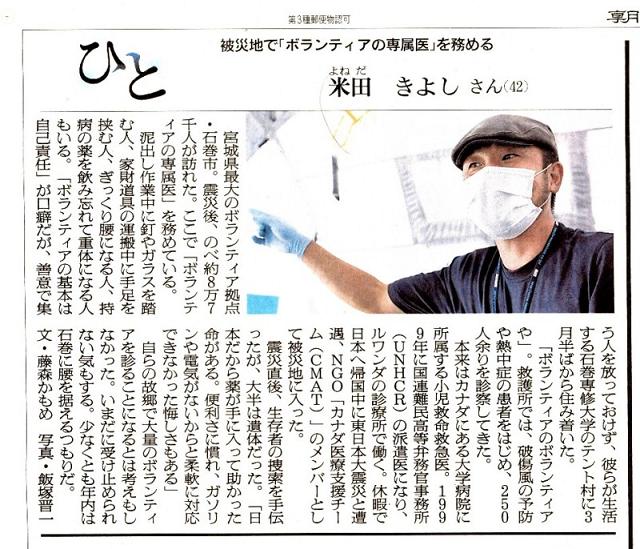 第3種郵便物認可
朝
ひと
被災地で「ボランティアの専属医」を務める
よねだ
米田 きよし さん(42)
宮城県最大のボランティア拠点
・石巻市。震災後、のべ約8万7
千人が訪れた。ここで「ボランテ
ィアの専属医」を務めている。
泥出し作業中に釘やガラスを踏
む人、家財道具の運搬中に手足を
挟む人、ぎっくり腰になる人、持
病の薬を飲み忘れて重体になる人
もいる。「ボランティアの基本は
自己責任」が口癖だが、善意で集
う人を放っておけず、彼らが生活
する石巻専修大学のテント村に3
月半ばから住み着いた。
「ボランティアのボランティア
や」。救護所では、破傷風の予防
や熱中症の患者をはじめ、250
人余りを診察してきた。
本来はカナダにある大学病院に
所属する小児救命救急医。199
9年に国連難民高等弁務官事務所
(UNHCR)の派遣医になり、
ルワンダの診療所で働く。休暇で
日本へ帰国中に東日本大震災と遭
遇、NGO「カナダ医療支援チー
ム(CMAT)」のメンバーとし
て被災地に入った。
震災直後、生存者の捜索を手伝
ったが、大半は遺体だった。「日
本だから薬が手に入って助かった
命がある。便利さに慣れ、ガソリ
ンや電気がないからと柔軟に対応
できなかった悔しさもある」
自らの故郷で大量のボランティ
アを診ることになるとは考えもし
なかった。いまだに受け止められ
ない気もする。少なくとも年内は
石巻に腰を据えるつもりだ。
文・藤森かもめ 写真・飯塚晋一